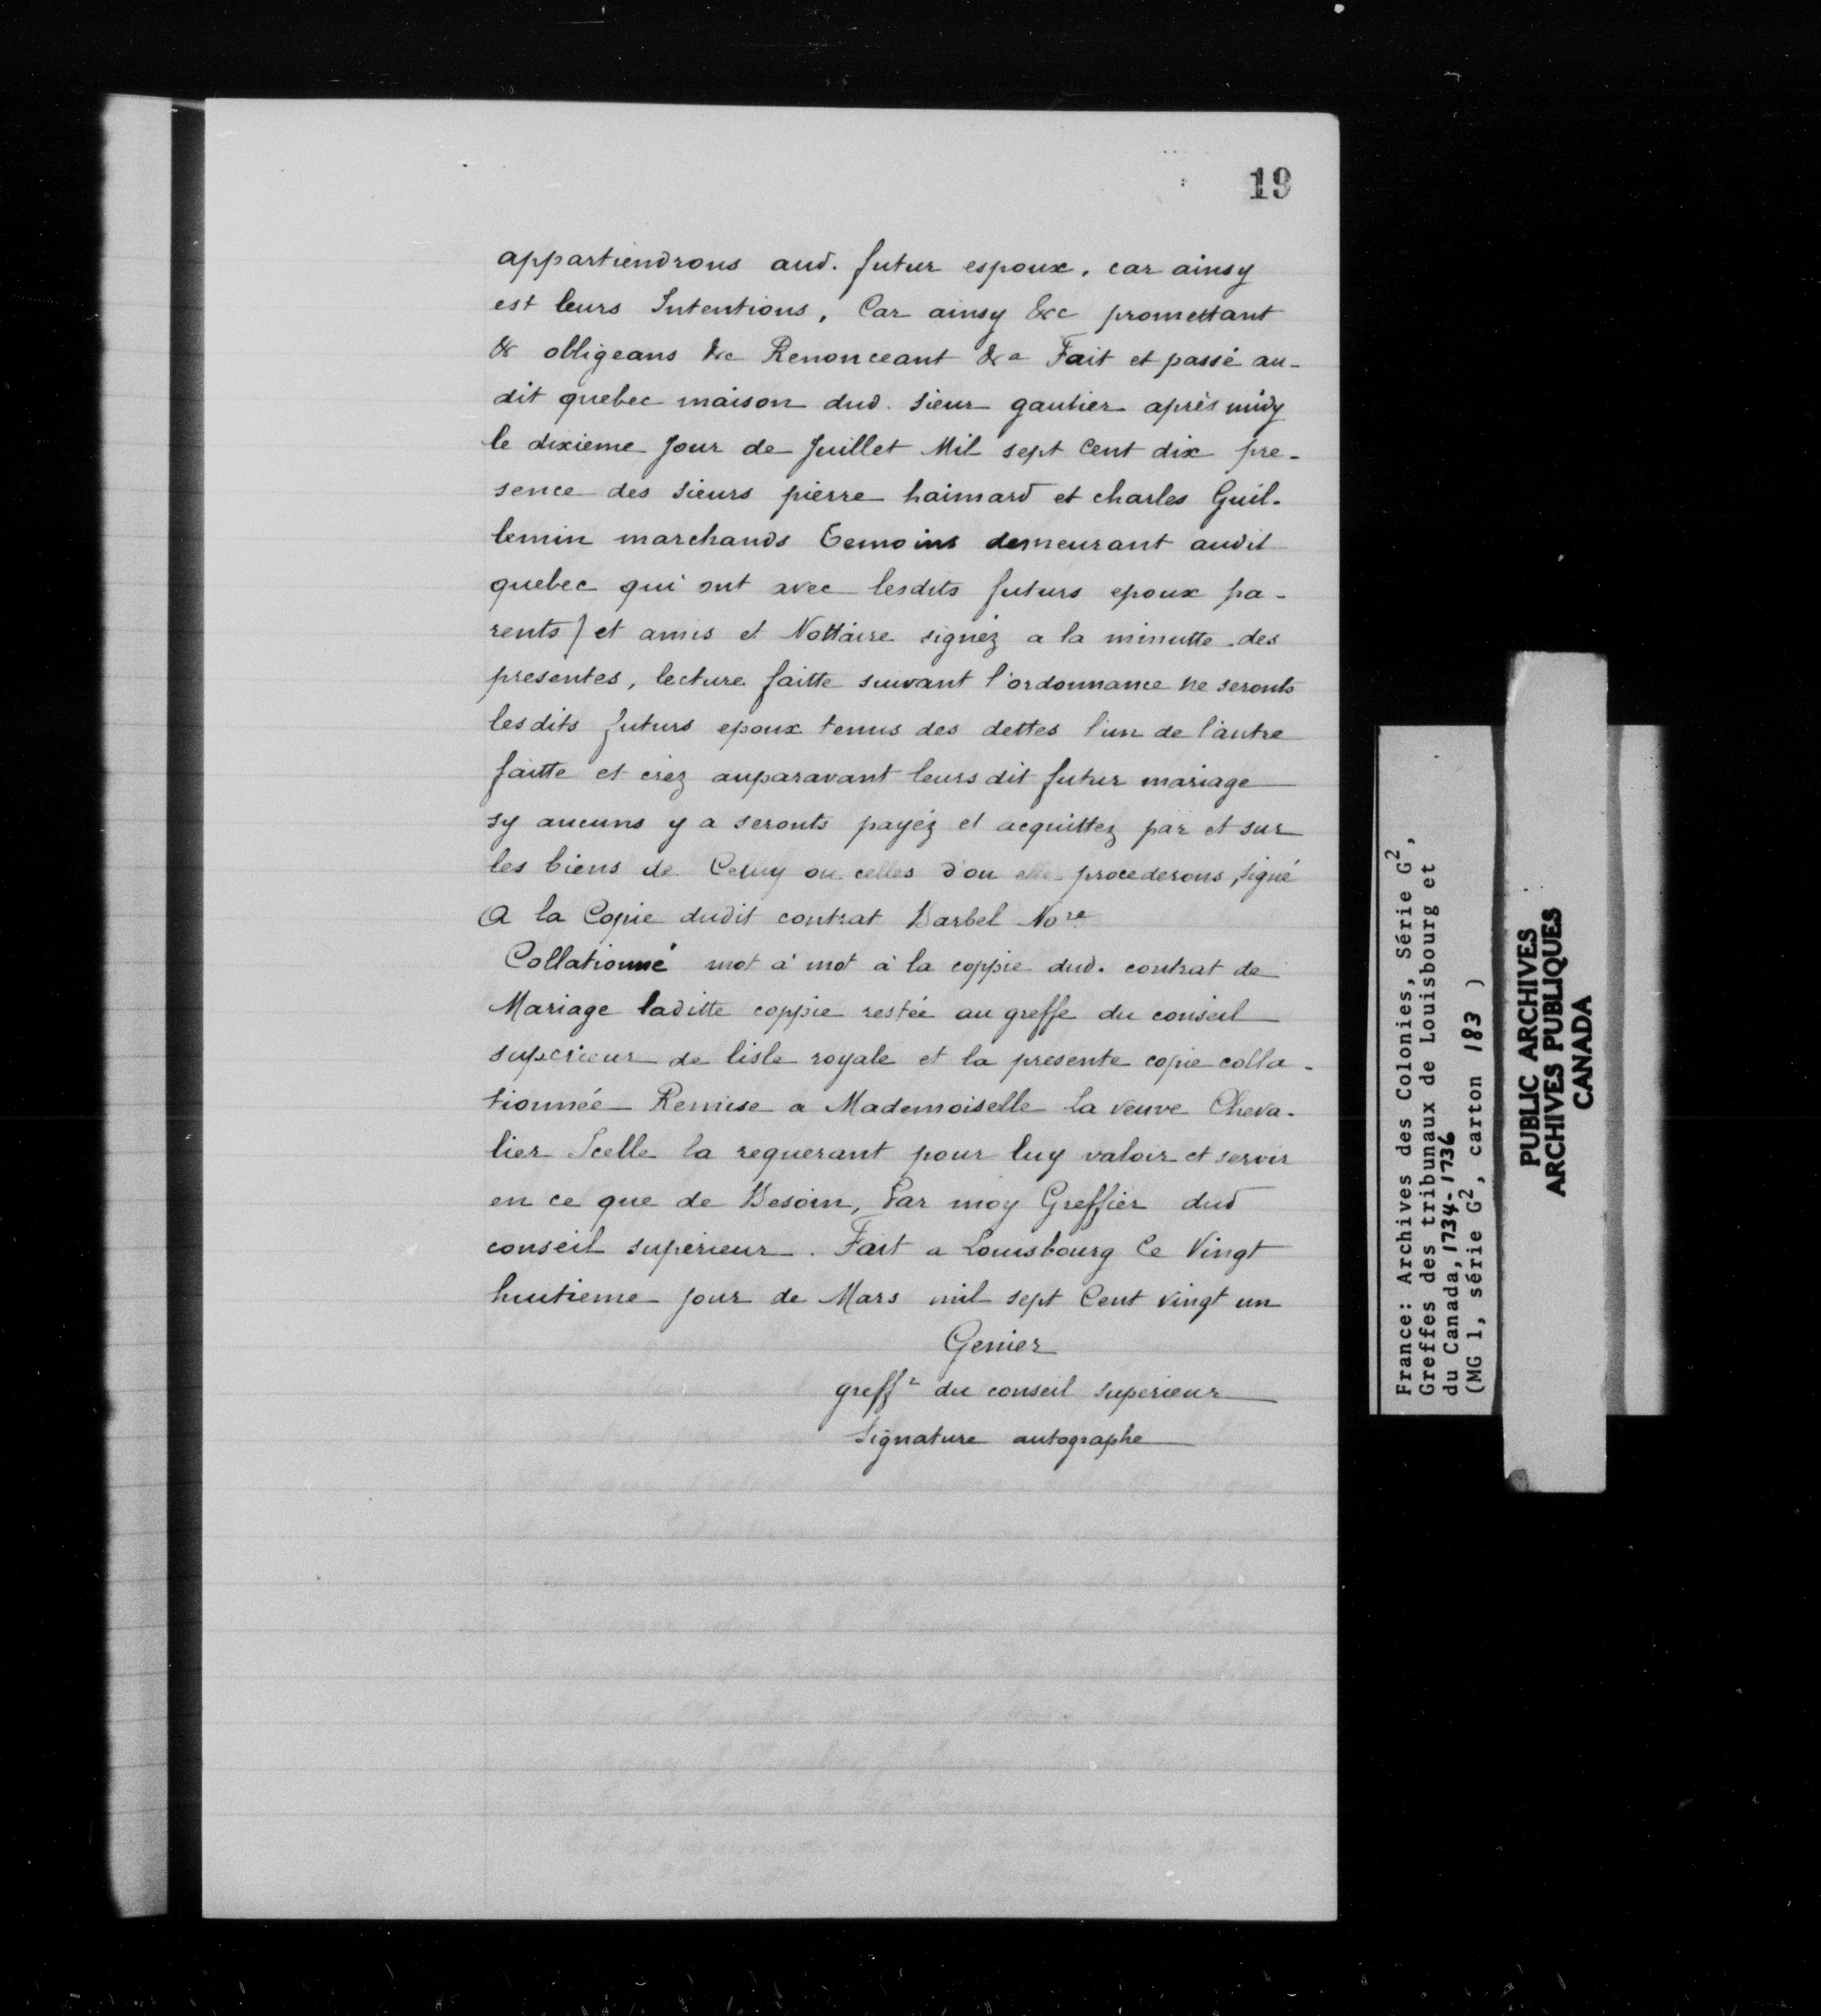 19
appartiendrons aud. futur espoux, car ainsy
est leurs Intentions, Car ainsy &c promettant
& obligeans &c Renonceant &a Fait et passé au-
dit quebec maison dud. sieur gautier après midy
le dixieme Jour de Juillet Mil sept Cent dix pre-
sence des sieurs pierre haimard et charles Guil-
lemin marchands temoins demeurant audit
quebec qui ont avec lesdits futurs epoux pa-
rents) et amis et Nottaire signéz a la minutte des
presentes, lecture faitte suivant l'ordonnance ne seronts
lesdits futurs epoux tenus des dettes l'un de l'autre
faitte et créz auparavant leurs dit futur mariage
sy aucuns y a seronts payéz et acquittez par et sur
les biens de Celuy ou celles d'ou elle procederons, signé
A la Copie dudit contrat Barbel No.re
Collationné mot à mot à la coppie dud. contrat de
Mariage laditte coppie restée au greffe du conseil
superieur de lisle royale et la presente copie colla-
tionnée Remise a Mademoiselle la veuve Cheva-
lier Icelle la requerant pour luy valoir et servir
en ce que de Besoin, Par moy Greffier dud
conseil superieur. Fait a Louisbourg Ce Vingt
huitieme jour de Mars mil sept Cent vingt un
greffr du conseil superieur
Signature autographe
France: Archives des Colonies, Série G2,
Greffes des tribunaux de Louisbourg et
du Canada, 1734-1736
(MG 1, série G2, carton 183 )
PUBLIC ARCHIVES
ARCHIVES PUBLIQUES
CANADA